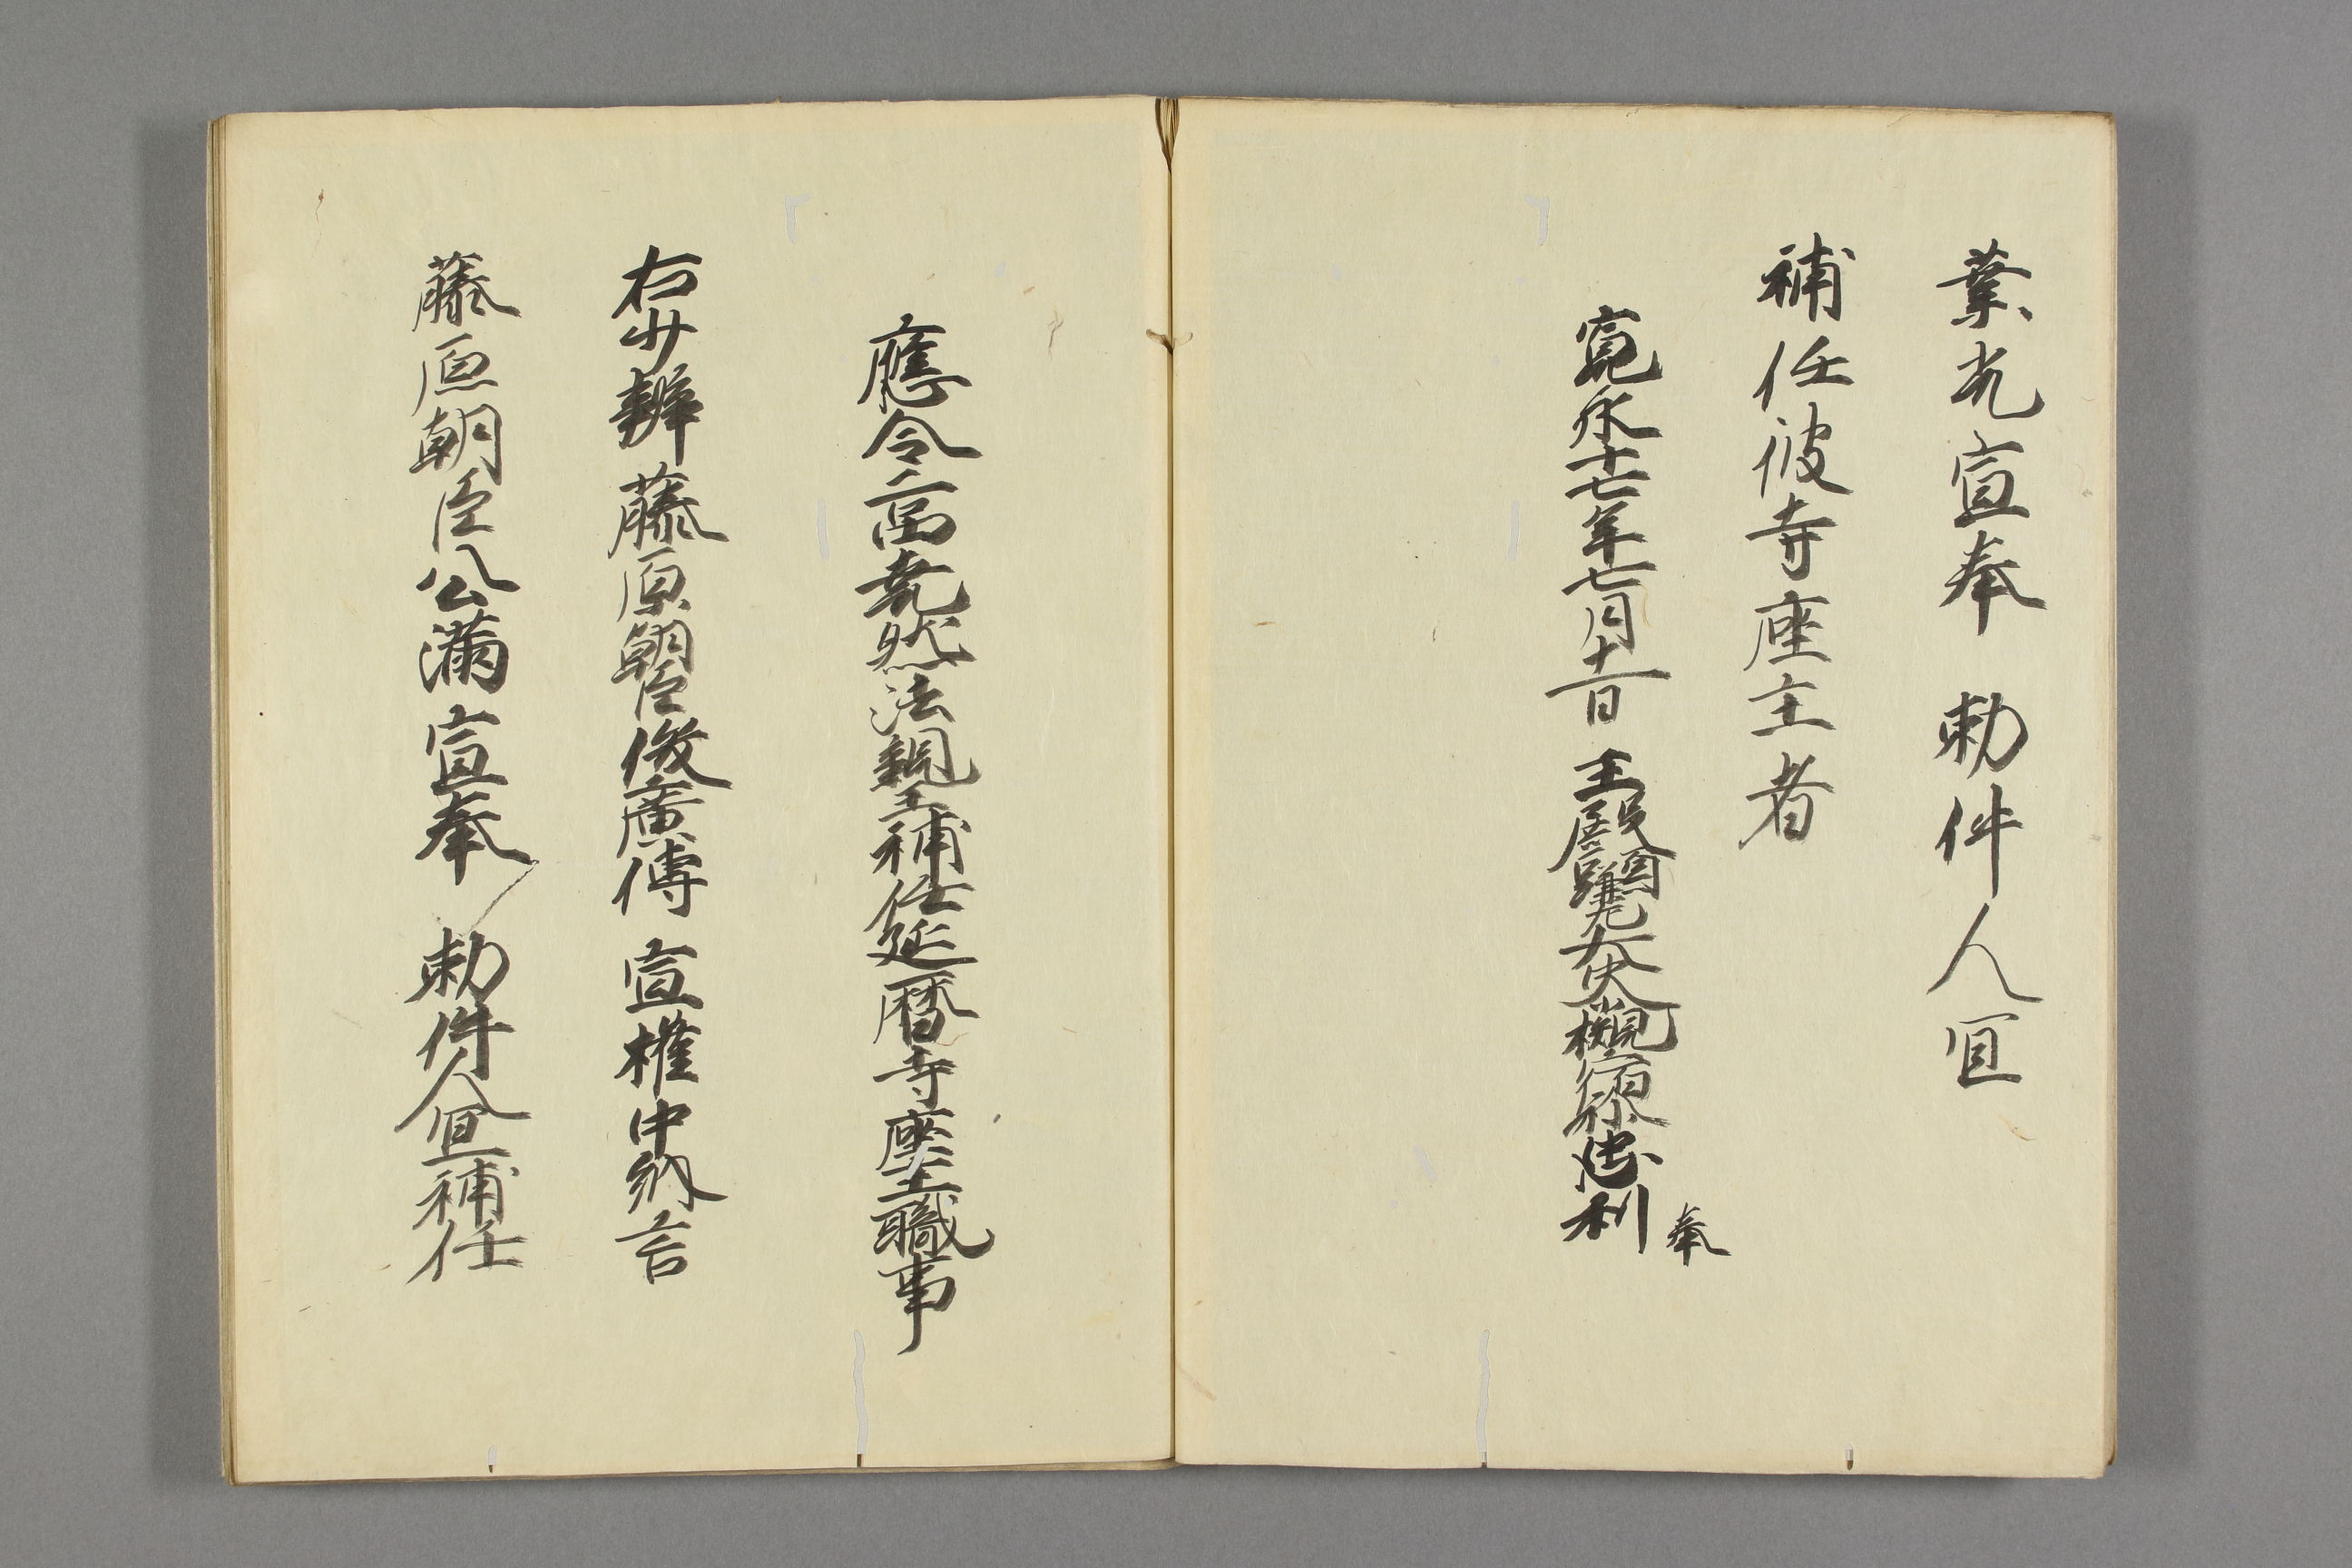 業光宣奉 勅件人宜
補任彼寺座主者
寛永十七年七月十一日 主殿頭兼左大史小槻宿祢忠利 奉
應令二品堯然法親王補任延暦寺座主職事
右少辨藤原朝臣俊廣傳 宣權中納言
藤原朝臣公満宣奉 勅件人宜補任